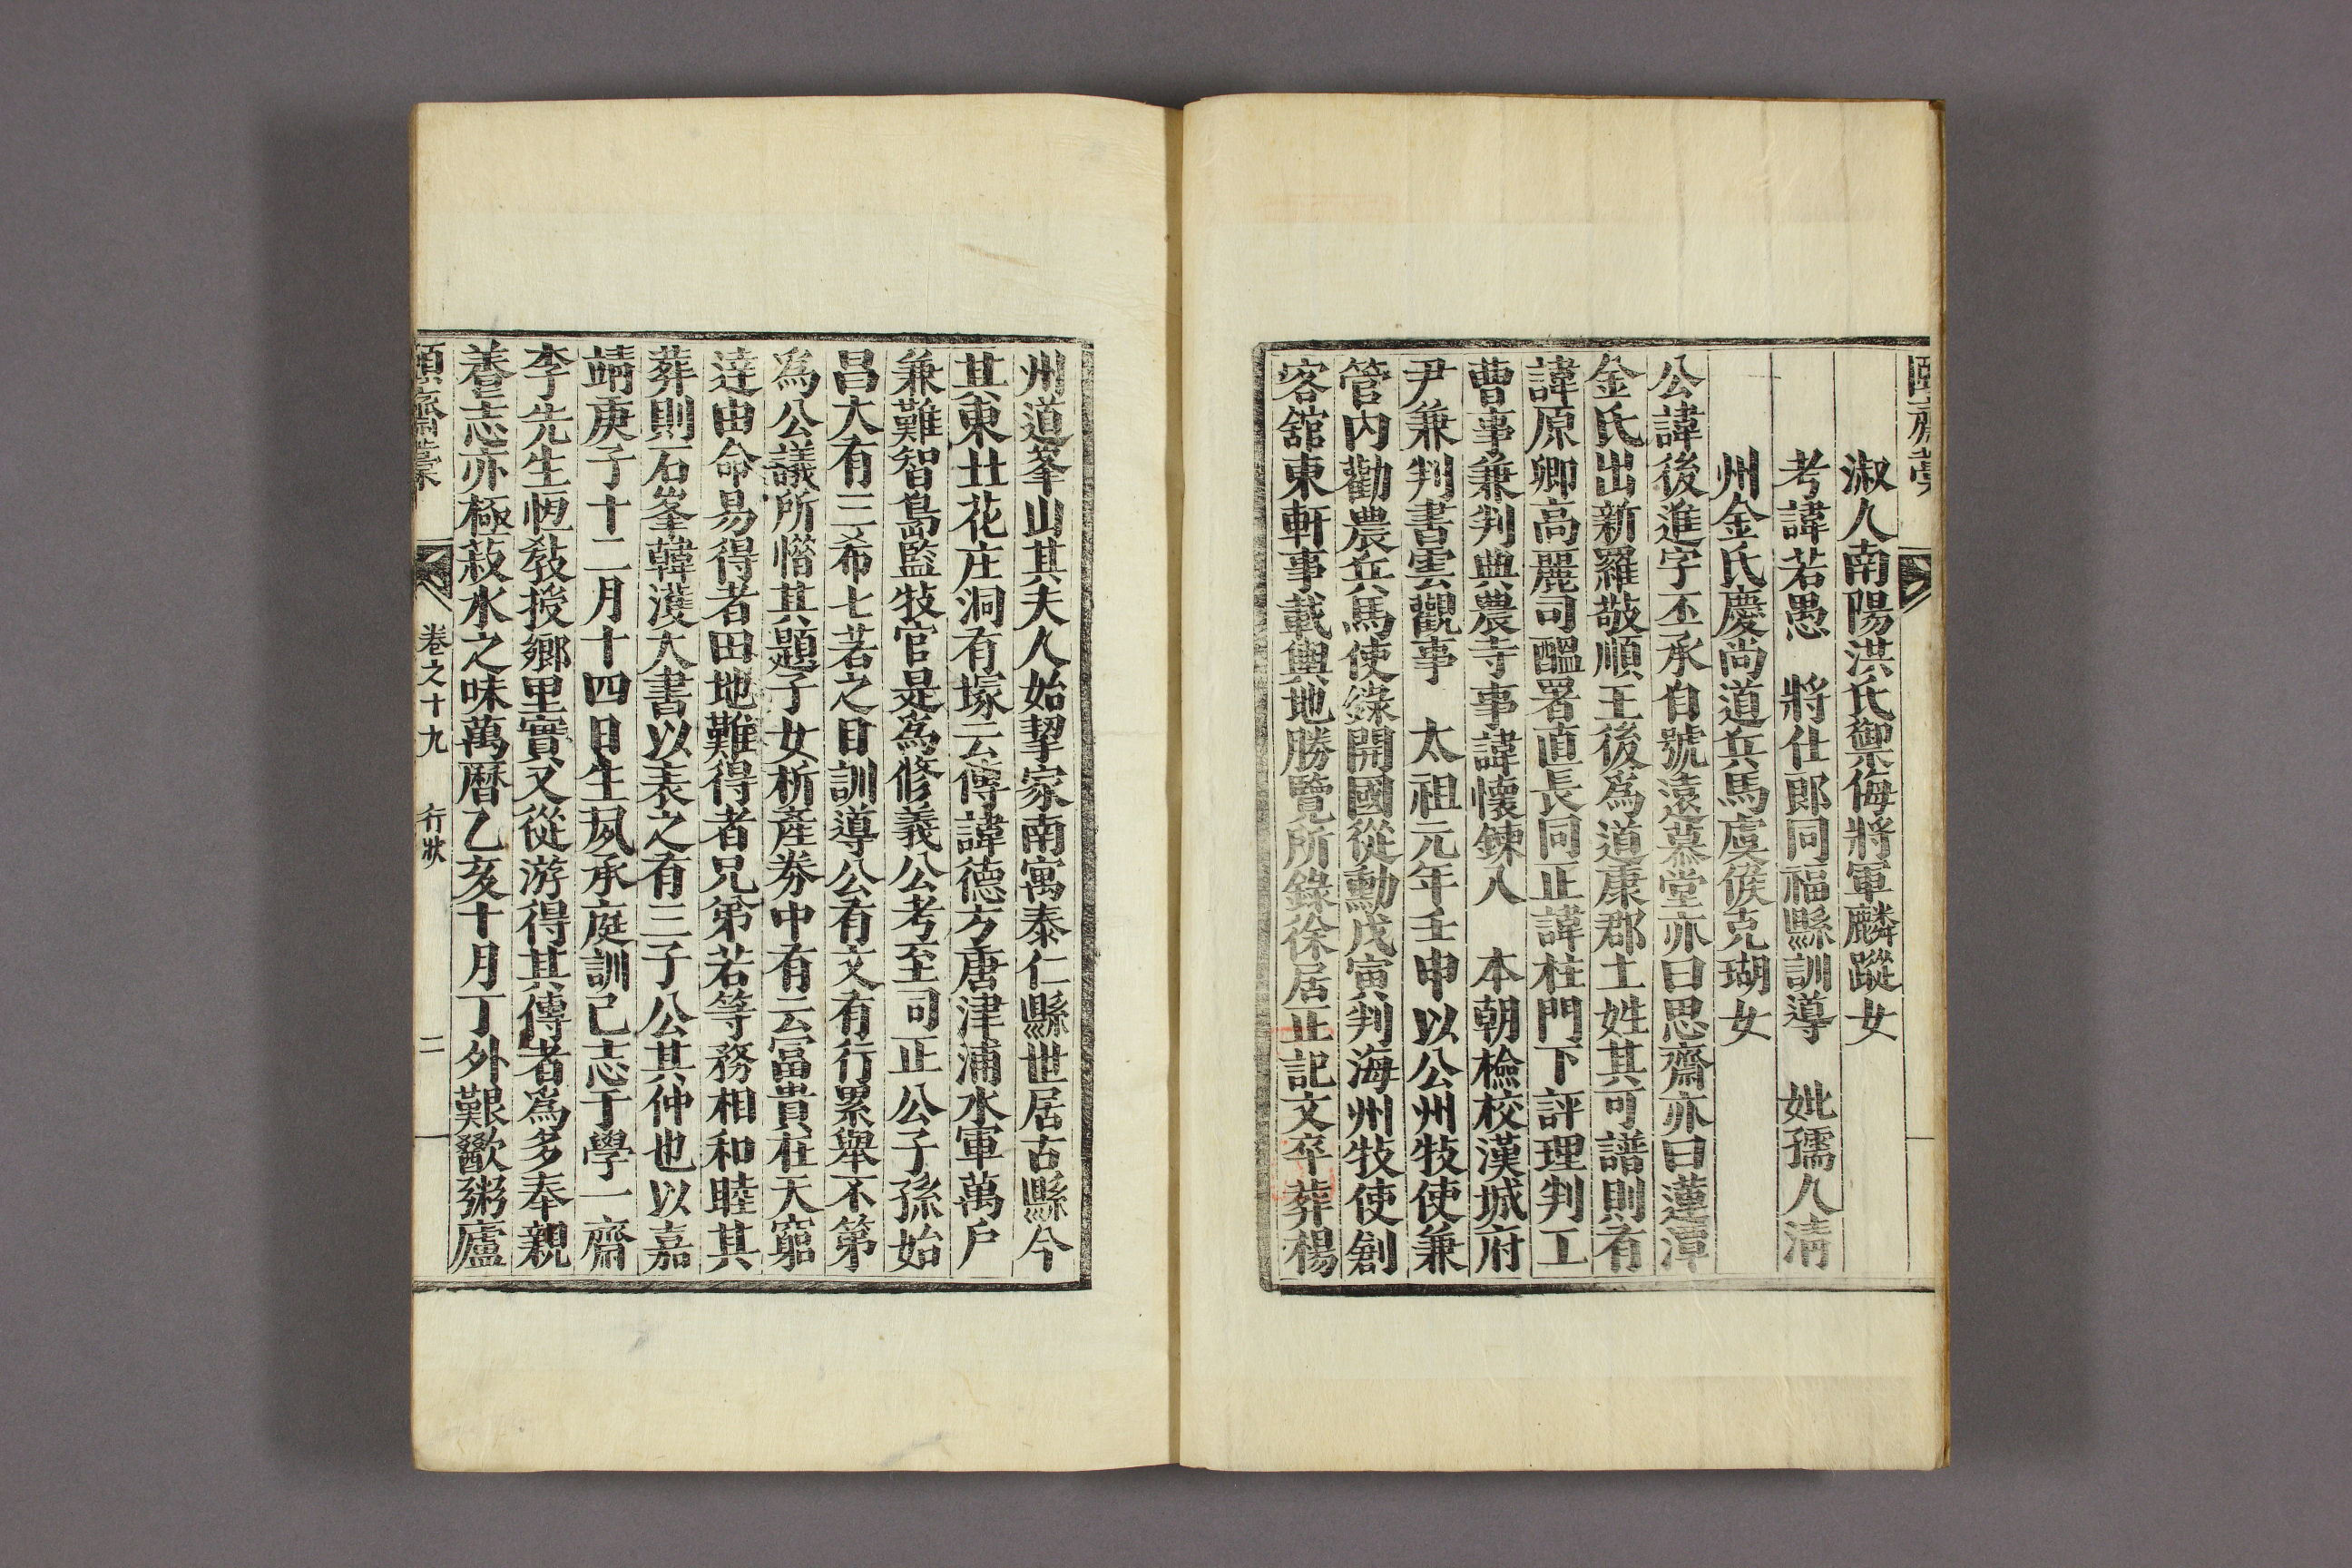 頤齋藁
淑人南陽洪氏禦侮將軍麟蹤女
考諱若愚　將仕郎同福縣訓導　妣孺人淸
州金氏慶尚道兵馬虞候克瑚女
公諱後進字丕承自號遠慕堂亦曰思齋亦曰蓮潭
金氏出新羅敬順王後爲道康郡土姓其可譜則有
諱原卿高麗司醞署直長同正諱柱門下評理判工
曹事兼判典農寺事諱懷鍊入　本朝檢校漢城府
尹兼判書雲觀事　太祖元年壬申以公州牧使兼
管內勸農兵馬使錄開國從勳戊寅判海州牧使創
客舘東軒事載輿地勝覽所錄徐居正記文卒葬楊
州道峯山其夫人始挈家南寓泰仁縣世居古縣今
其東壯花庄洞有塚云傳諱德方唐津浦水軍萬戶
兼難智島監牧官是爲修義公考至司正公子孫始
昌大有三希七若之目訓導公有文有行累舉不第
爲公議所惜其題子女析產券中有云富貴在天窮
達由命易得者田地難得者兄弟若等務相和睦其
葬則石峯韓濩大書以表之有三子公其仲也以嘉
靖庚子十二月十四日生夙承庭訓已志于學一齋
李先生恆敎授鄉里實又從游得其傳者爲多奉親
養志亦極菽水之味萬曆乙亥十月丁外艱歠粥廬
頤齋藁
卷之十九　行狀　二